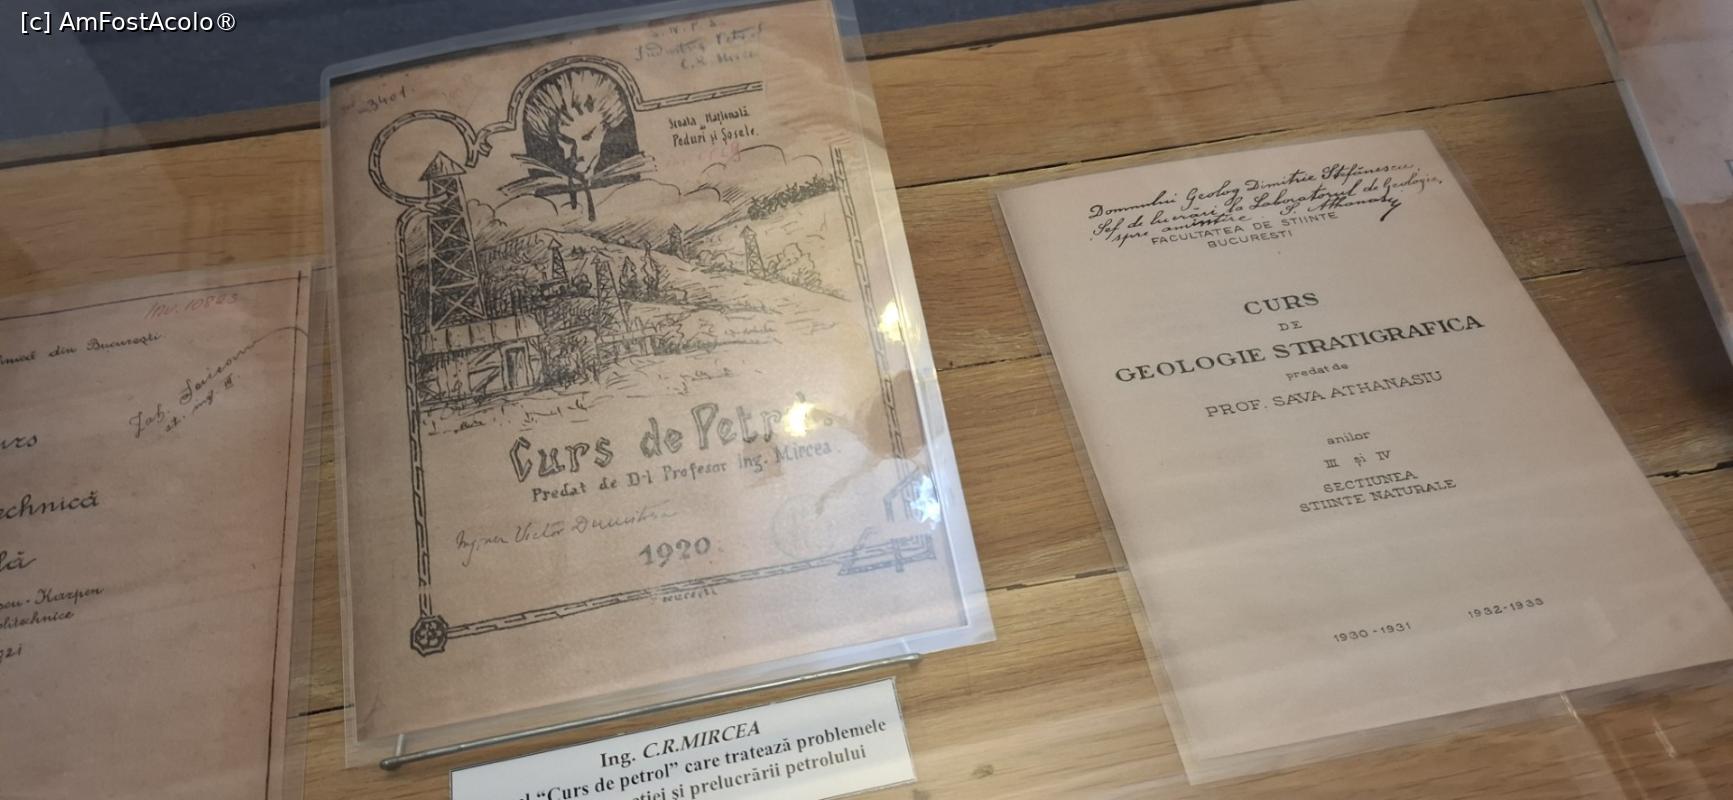 [c] AmFostAcolo®
Inv. 10823
din București
echnică
Karpen
3401.
C.R. Mircea
Școala Națională
de
Poduri și Șosele.
Curs de Petrol
Predat de D-l Profesor Ing. Mircea.
Inginer Victor Dumitrescu
1920.
Domnului Geolog Dimitrie Ștefănescu,
Șef de lucrări la Laboratorul de Geologie,
spre amintire. S. Athanasiu
FACULTATEA DE STIINTE
BUCURESTI
CURS
DE
GEOLOGIE STRATIGRAFICA
predat de
PROF. SAVA ATHANASIU
anilor
III și IV
SECTIUNEA
STIINTE NATURALE
1930-1931 1932-1933
Ing. C.R.MIRCEA
“Curs de petrol” care tratează problemele
și prelucrării petrolului